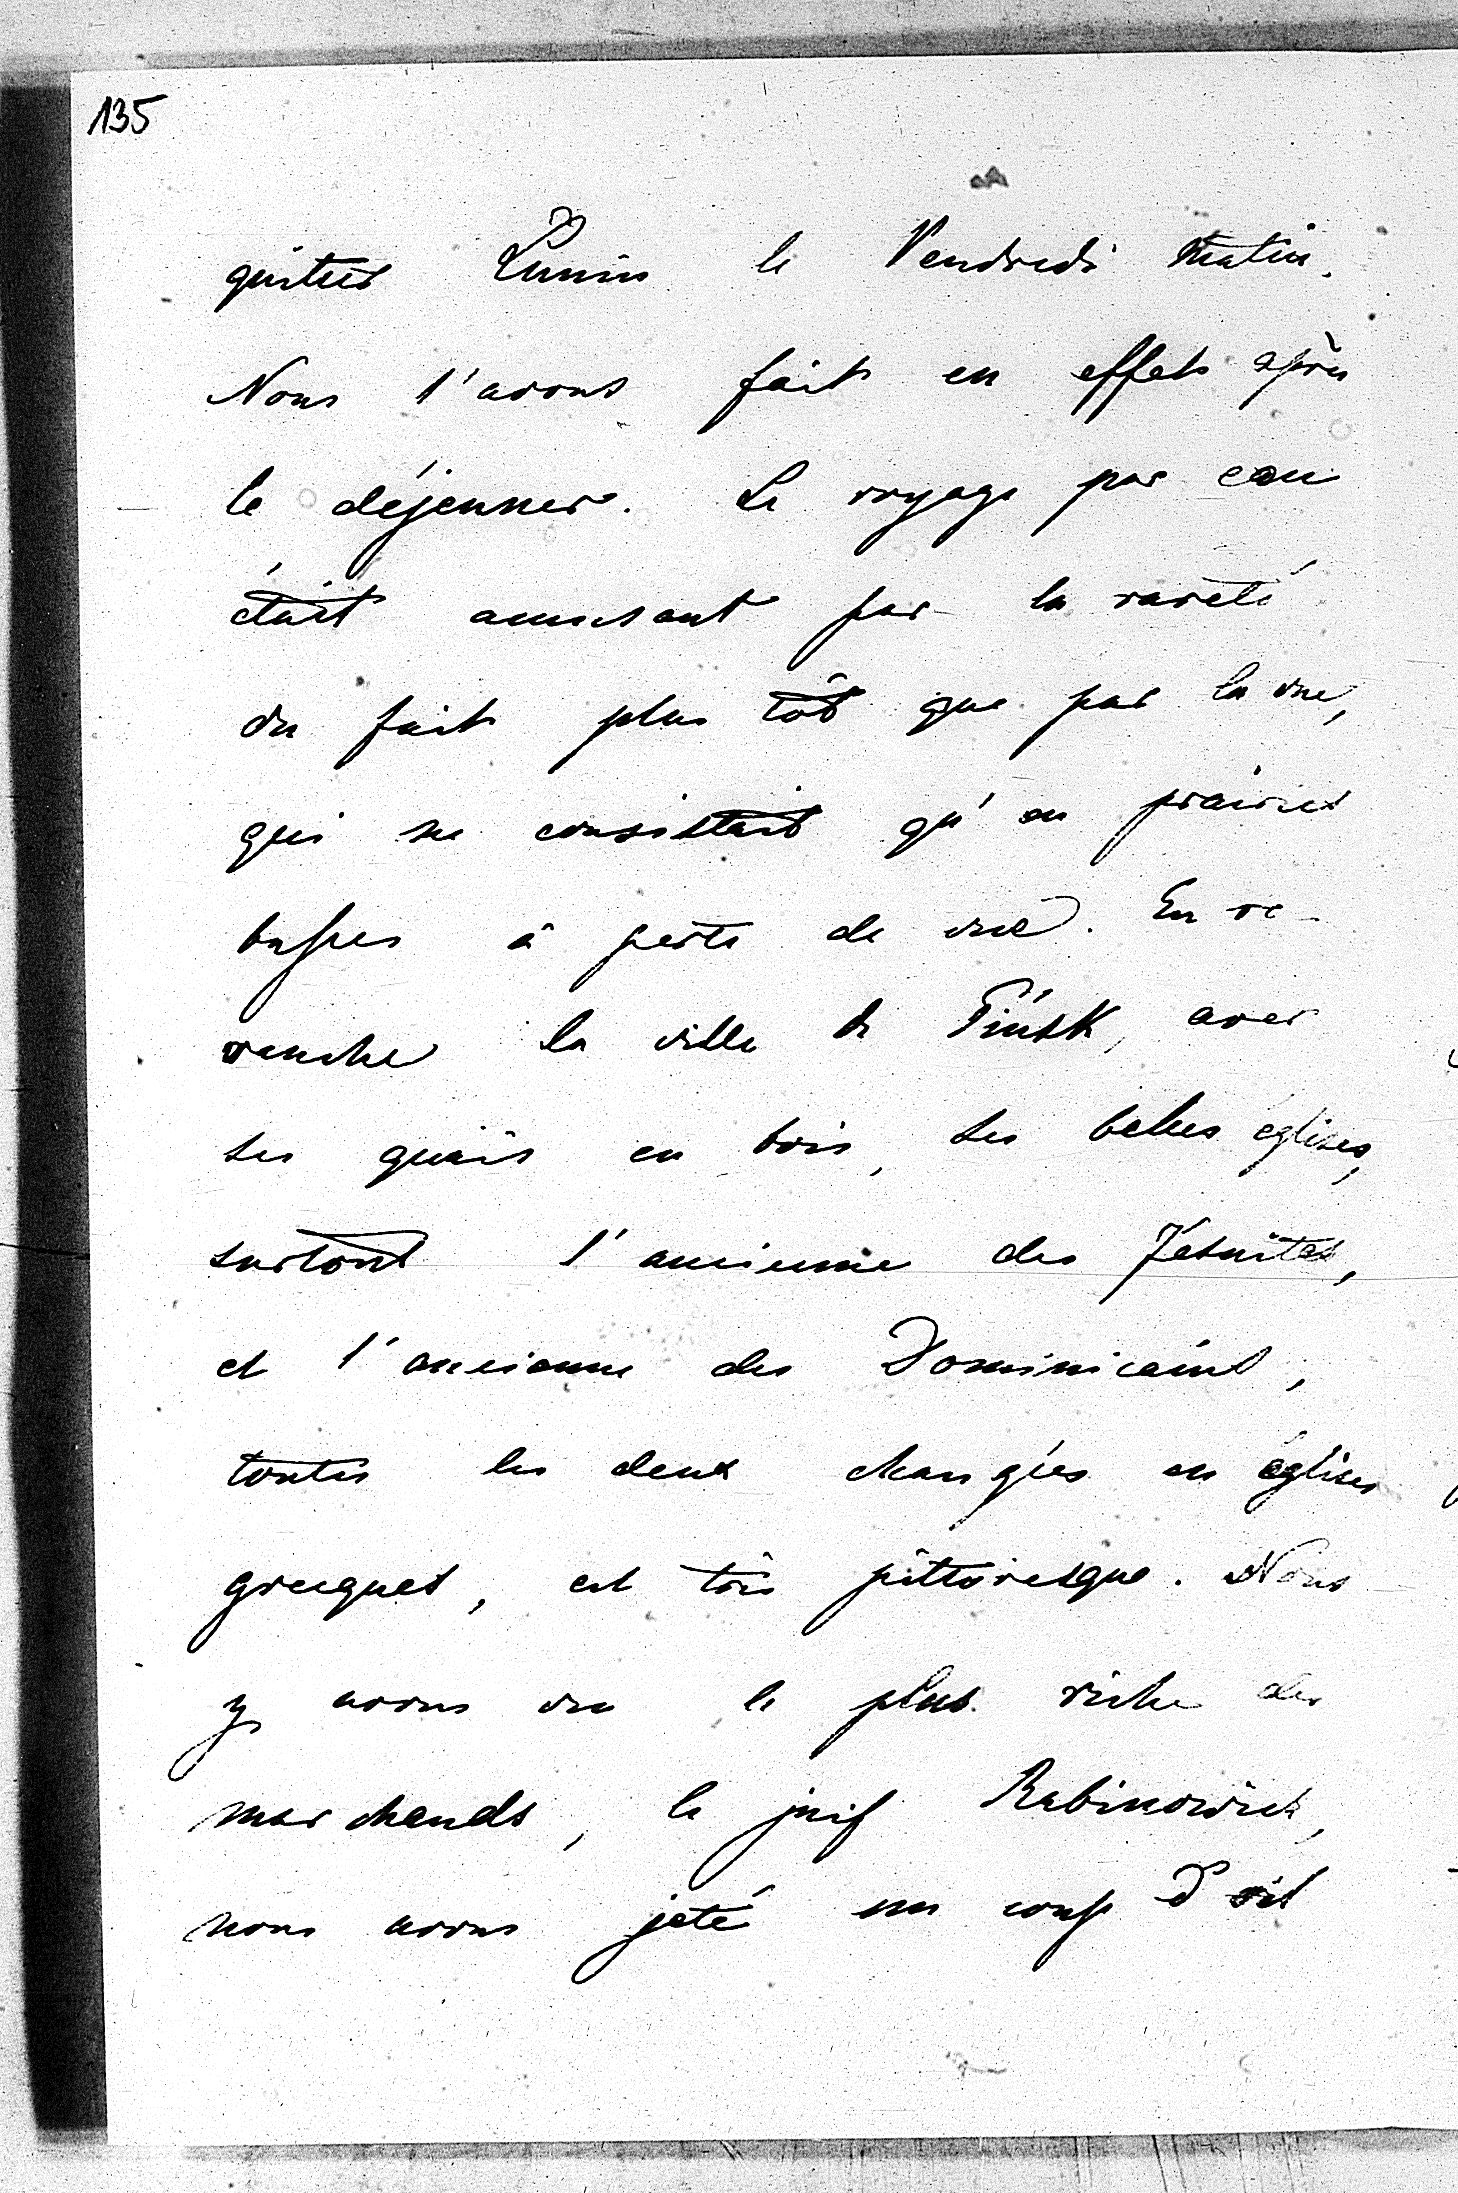 135
quittés Lunin le Vendredi Matin.
Nous l'avons fait en effet après
le déjeuner. Le voyage par eau
était amusant par la rareté
du fait plus tôt que par la vue,
qui ne consistait qu'en prairies
basses à perte de vue. En re-
vanche la ville de Pińsk, avec
ses quais en bois, ses belles églises,
surtout l'ancienne des Jésuites,
et l'ancienne des Dominicains,
toutes les deux changées en églises
grecques, est très pittoresque. Nous
y avons vu le plus riche des
marchands, le juif Rabinowicz,
nous avons jeté un coup d'œil